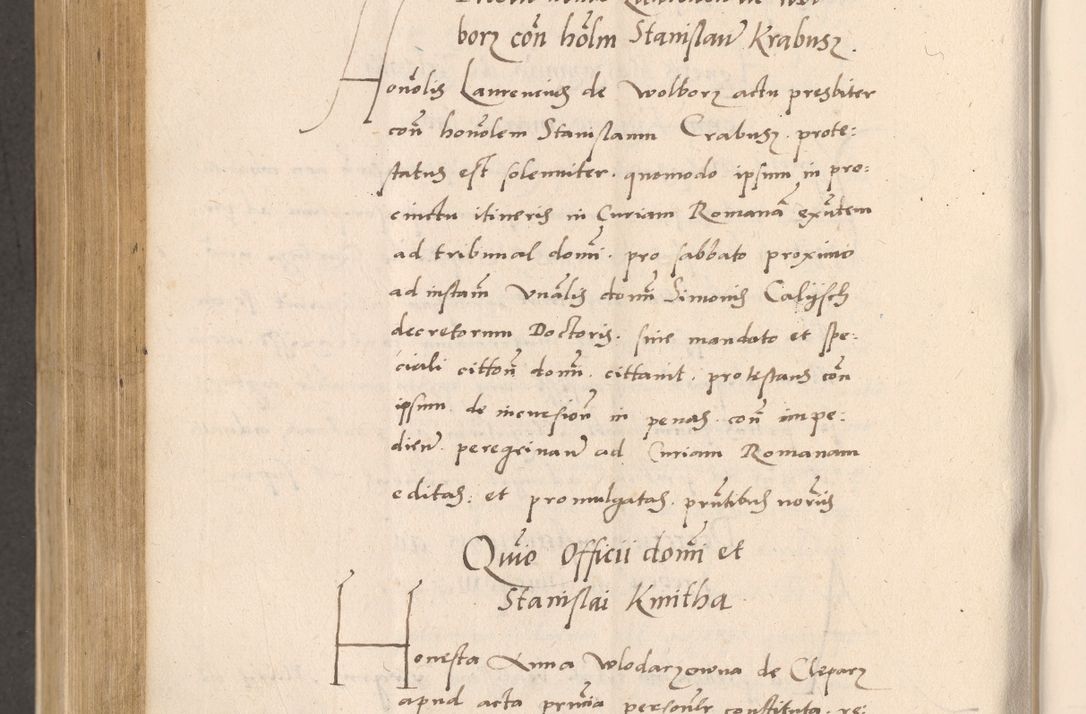 borz con̄ hōlm Stanislaw̄ Krabusz.
Honōlis Laurencius de Wolborz actu presbiter
con̄ honōlem Stanislaum Crabusz. prote:
status est solenniter. quomodo ipsum in pro:
cinctu itineris in Curiam Romanā exn̄tem
ad tribunal domī. pro sabbato proximo
ad instam̄ Vnālis domī Simonis Calijsch
decretorum Doctoris. sine mandato et spe:
ciali cittōn domī. cittaint. protestans con̄
ipsum de incursion̄ in penas con̄ impe:
dien̄. peregrinan̄ ad Curiam Romanam
editas: et promulgatas. prn̄tibus norīis
Qnīo Officii domī et
Stanislai Kmitha
Honesta Anna Wlodarzowna de Cleparz
apud acta prn̄cia personlr̄ constituta. re: